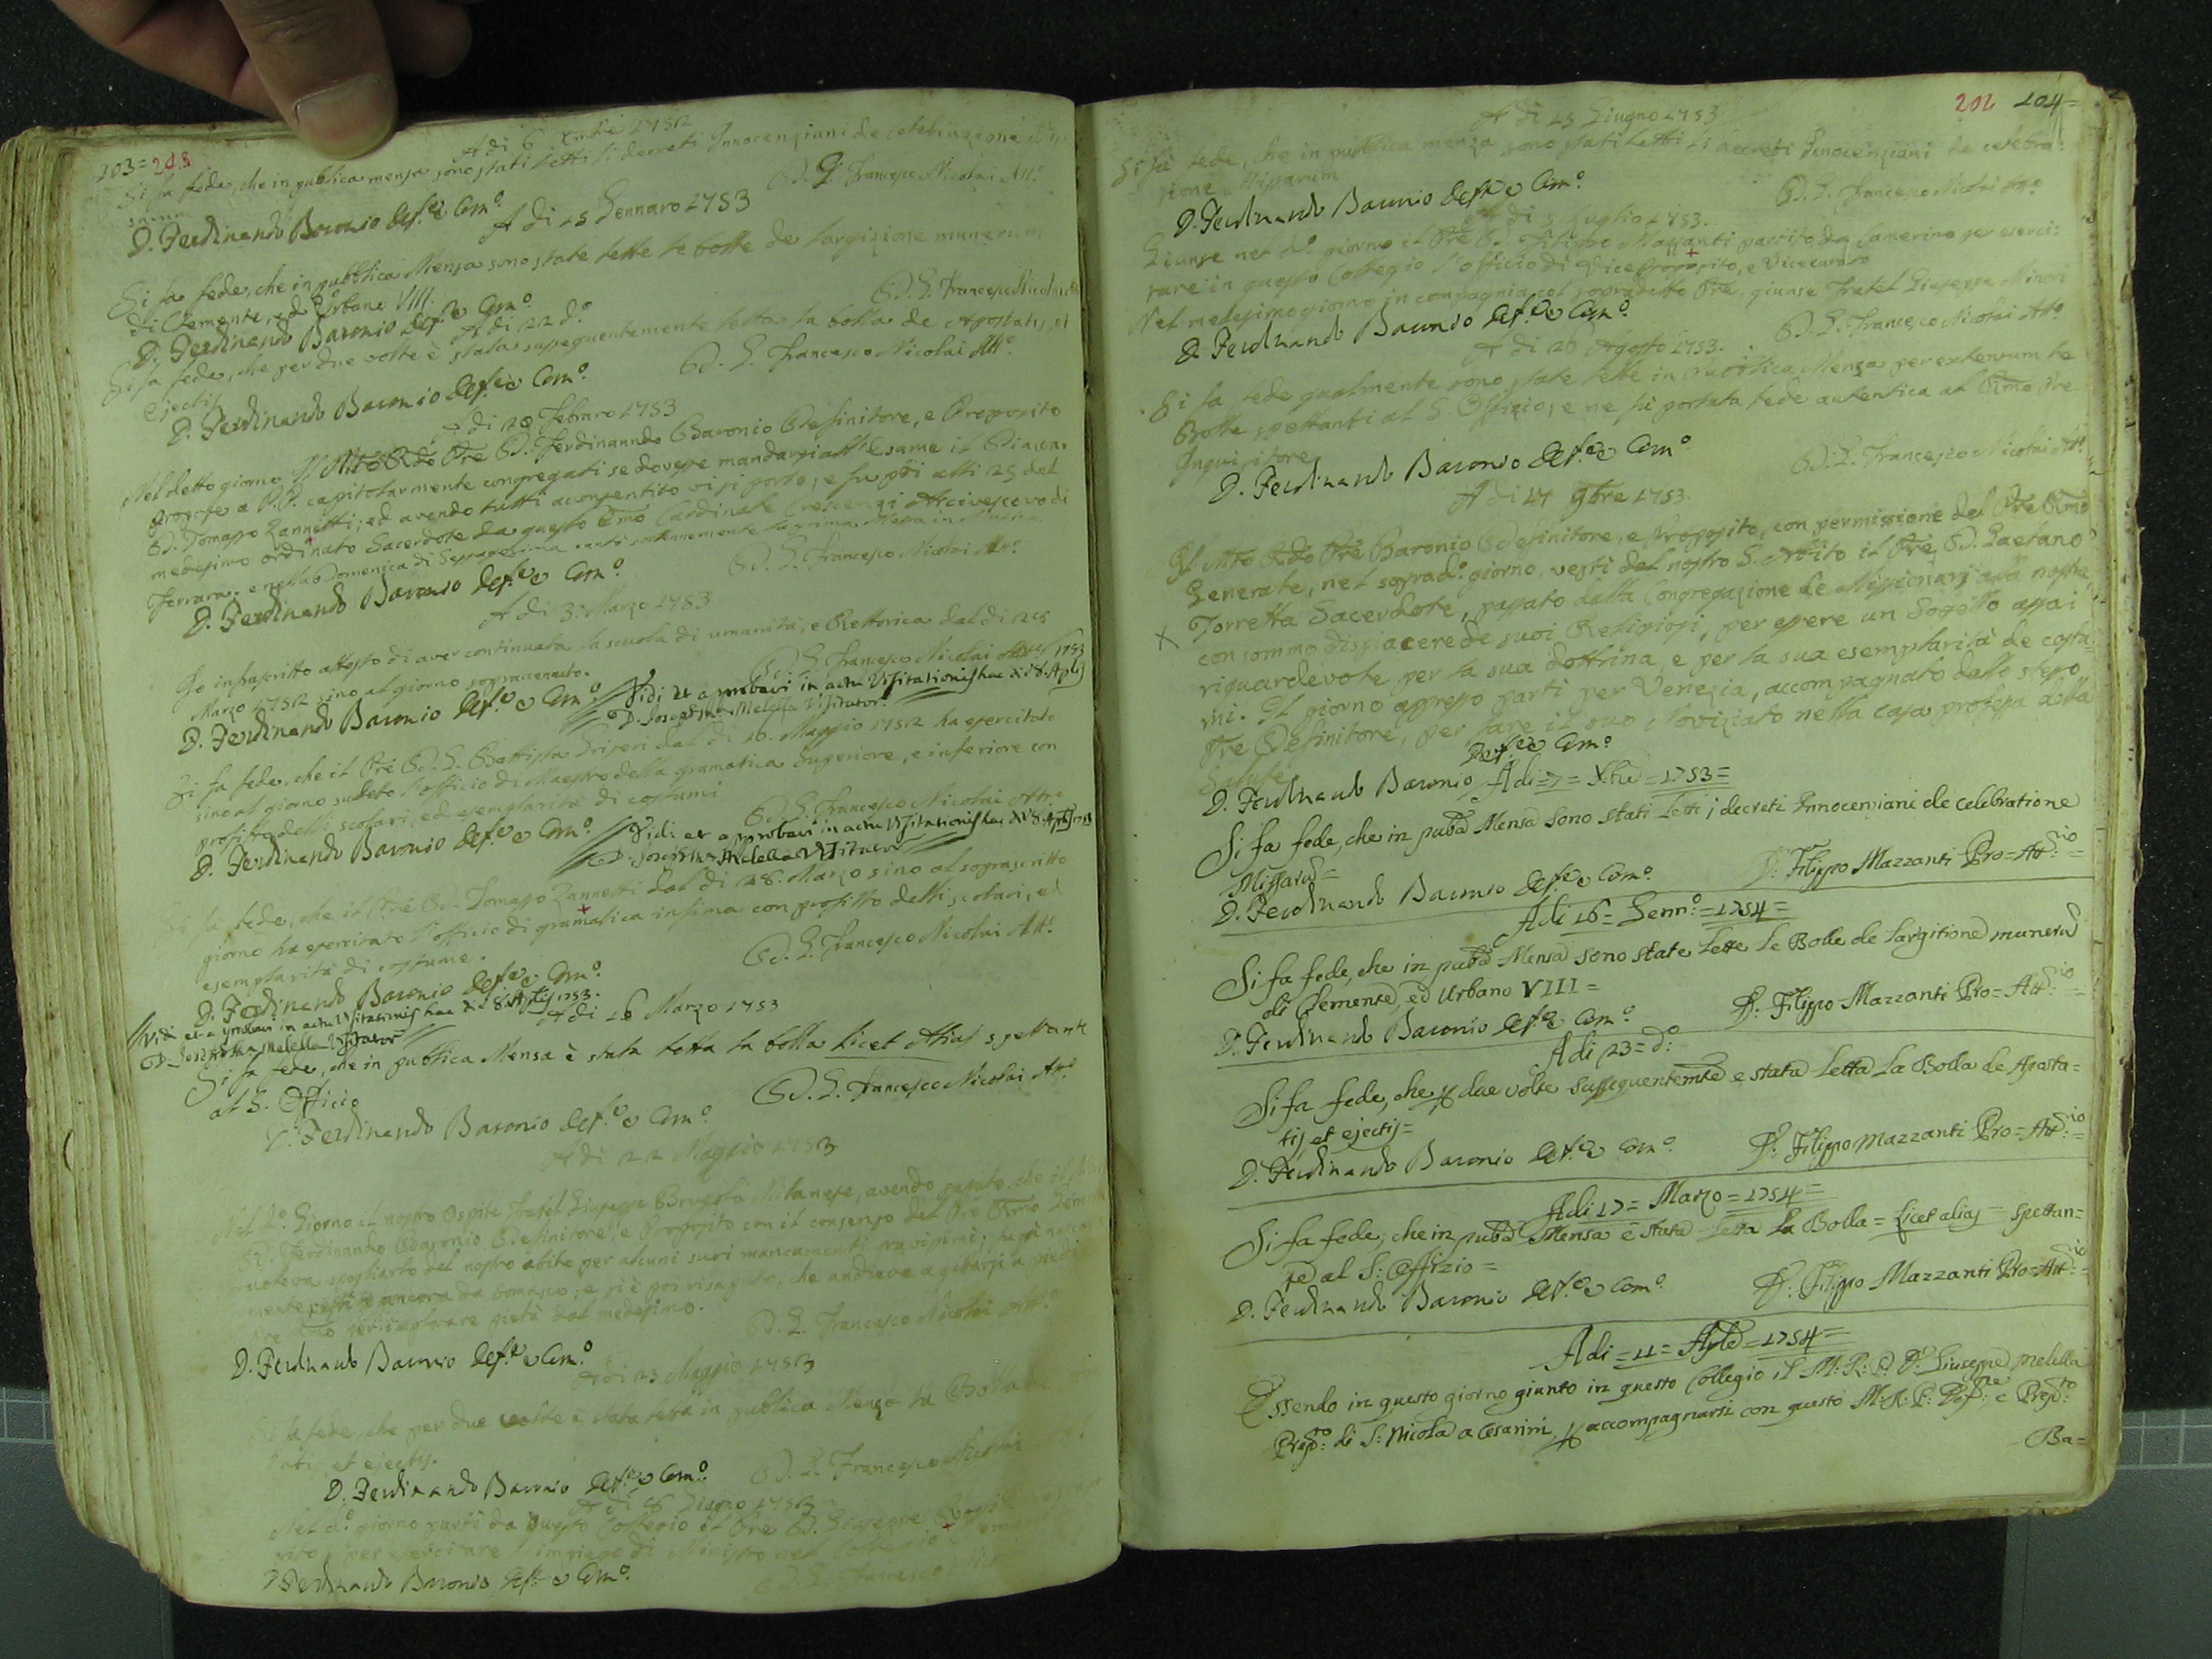 103= 203
A di 6 Xmbre 1752
Si fa fede, che in publica mensa sono stati letti li decreti Innocenziani de celebrazione
D. G. Francesco Nicolai Att.º
D. Ferdinando Baronio Def.e e Com.º
A di 15 Gennaro 1753
Si fa fede, che in pubblica Mensa sono state lette le bolle de largizione munerum
di Clemente, ed Urbano VIII.
D. G. Francesco Nicolai
D. Ferdinando Baronio Def.e e Com.º
A di 22 d.º
Si fa fede, che per due volte è stata susseguentemente letta la bolla de Apostatis, et
ejectis
D. G. Francesco Nicolai Att.º
D. Ferdinando Baronio Def.e e Com.º
A di 20 Febraro 1753
Nel detto giorno Il Mto Rdo Pre D. Ferdinanndo Baronio Definitore, e Proposito
propose a P.P. capitolarmente congregati se dovesse mandarsi all'Esame il Diacono
D. Tomasso Zannetti; ed avendo tutti acconsentito vi si portò, e fu poi alli 25 del
medesimo ordinato Sacerdote da questo Emo Cardinale Crescenzi Arcivescovo di
Ferrara, e nella Domenica di Sessagesima cantò solennemente la prima Messa in
D. G. Francesco Nicolai Att.º
D. Ferdinando Baronio Def.e e Com.º
A di 3. Marzo 1753
Io infrascritto attesto di aver continuata la scuola di umanità, e Rettorica dal di 25
Marzo 1752 sino al giorno sopraccennato.
D. G. Francesco Nicolai
D. Ferdinando Baronio Def.e e Com.º
Vidi et approbavi in actu Visitationis hac die 8. Aplis 1753
D. Joseph M.a Melella Visitator
Si fa fede, che il Pre D. G. Battista Griseri dal di 10. Maggio 1752 ha esercitato
sino al giorno sudetto l'officio di Maestro della gramatica Superiore, e inferiore con
profitto delli scolari, ed esemplarità di costumi
D. G. Francesco Nicolai Att.º
D. Ferdinando Baronio Def.e e Com.º
Vidi et approbavi in actu Visitationis hac die 8. Aplis 1753
D. Joseph M.a Melella Visitator
Si fa fede, che il Pre D. Tomasso Zannetti dal di 28. Marzo sino al soprascritto
giorno ha esercitato l'officio di gramatica infima con profitto delli scolari, ed
esemplarità di costume.
D. G. Francesco Nicolai Att.º
D. Ferdinando Baronio Def.e e Com.º
Vidi et approbavi in actu Visitationis hac die 8. Aplis 1753.
D. Joseph M.a Melella Visitator
A di 16 Marzo 1753
Si fa fede, che in publica Mensa è stata letta la bolla Licet Alias spettante
al S. Officio
D. G. Francesco Nicolai Att.º
D. Ferdinando Baronio Def.e e Com.º
A di 22 Maggio 1753
Nel d.º Giorno il nostro Ospite Fratel Giuseppe Brugora Milanese, avendo saputo, che il
D. Ferdinando Baronio Definitore, e Proposito con il consenso del Pre Rmo
voleva spogliarlo del nostro abito per alcuni suoi mancamenti gravissimi; fuggì
ancora da Domasco; e si è poi risaputo, che andieve a gittarsi a piedi
per implorare pietà dal medesimo.
D. G. Francesco Nicolai Att.º
D. Ferdinando Baronio Def.e e Com.º
A di 23 Maggio 1753
Si fa fede, che per due volte è stata letta in publica Mensa la Bolla
et ejectis.
D. G. Francesco Nicolai
D. Ferdinando Baronio Def.e e Com.º
A di 8 Giugno 1753
Nel d.º giorno partì da questo Collegio il Pre D. Giuseppe
per esercitare l'impiego di Ministro nel Collegio
D. Ferdinando Baronio Def.e e Com.º
202 104=
A di 15 Giugno 1753
Si fa fede, che in pubblica mensa sono stati letti li decreti Innocenziani de celebra:
zione Missarum
D. G. Francesco Nicolai Att.º
D. Ferdinando Baronio Def.e e Com.º
A di 5 Luglio 1753.
Giunse nel d.º giorno il Pre D. Filippo Mazzanti partito da Camerino per eserci:
tare in questo Collegio l'officio di Viceproposito, e Vicecurato
Nel medesimo giorno in compagnia col sopradetto Pre, giunse Fratel Giuseppe Minori
D. G. Francesco Nicolai Att.º
D. Ferdinando Baronio Def.e e Com.º
A di 26 Agosto 1753.
Si fa fede qualmente sono state lette in Pubblica Mensa per extensum le
Bolle spettanti al S. Offizio, e ne fù portata fede autentica al Rmo Pre
Inquisitore
D. G. Francesco Nicolai Att.º
D. Ferdinando Baronio Def.e e Com.º
A di 14 9bre 1753.
Il Mto Rdo Pre Baronio Definitore, e Proposito, con permissione del Pre Rmo
Generale, nel soprad.º giorno, vestì del nostro S. Abito il Pre D. Gaetano
Torretta Sacerdote, passato dalla Congregazione de Missionarj alla nostra
con sommo dispiacere de suoi Religiosi, per essere un Sogetto assai
riguardevole per la sua dottrina, e per la sua esemplarità de costu=
mi. Il giorno appresso partì per Venezia, accompagnato dallo stesso
Pre Definitore, per fare il suo Noviziato nella casa professa della
Salute
D. Ferdinando Baronio Def.e e Com.º
A di =7= Xbre =1753=
Si fa fede, che in pubca Mensa sono stati letti i decreti Innocenziani de celebratione
Missarum=
D: Filippo Mazzanti Pro=Att:rio=
D. Ferdinando Baronio Def.e e Com.º
A di 16= Genn:º=1754=
Si fa fede, che in pubca Mensa sono state lette le Bolle de largitione munerum
di Clemente, ed Urbano VIII=
D: Filippo Mazzanti Pro=Att:rio=
D. Ferdinando Baronio Def.e e Com.º
A di 23= d:º
Si fa fede, che p due volte susseguentemte è stata letta la Bolla de Aposta=
tis, et ejectis=
D: Filippo Mazzanti Pro=Att:rio=
D. Ferdinando Baronio Def.e e Com.º
A di 17= Marzo =1754=
Si fa fede, che in pubca Mensa è stata letta la Bolla= Licet alias= spettan=
te al S: Offizio=
D: Filippo Mazzanti Pro=Att:rio=
D. Ferdinando Baronio Def.e e Com.º
A di =11= Aple =1754=
Essendo in questo giorno giunto in questo Collegio il M: R: P: D: Giuseppe Melella
Prep:to di S: Nicola a Cesarini, p accompagnarsi con questo M: R: P: Def:re e Prep:to
Ba=